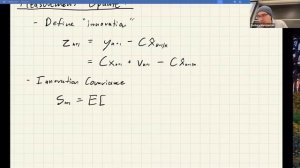 Measurement Update
- Define "innovation"
zₙ₊₁ = yₙ₊₁ - Cx̂ₙ₊₁|ₙ
= Cxₙ₊₁ + vₙ₊₁ - Cx̂ₙ₊₁|ₙ
- Innovation Covariance
Sₙ₊₁ = E[